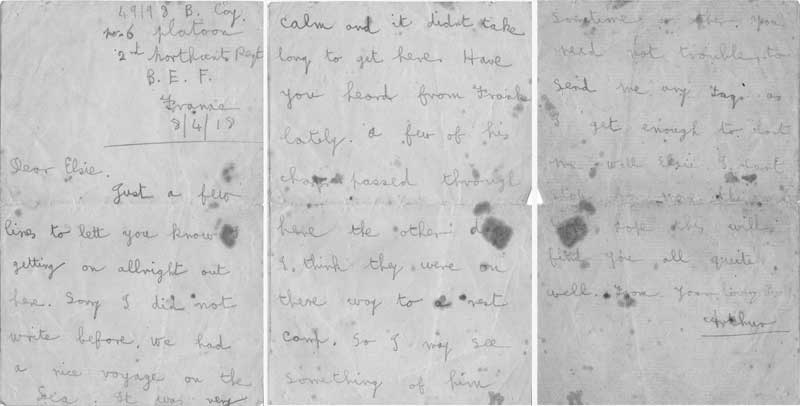 49198 B. Coy.
no 6 platoon
2nd Northants Regt
B. E. F.
France
8/4/18
Dear Elsie.
Just a few
lines to lett you know
getting on allright out
here. Sorry I did not
write before, we had
a nice voyage on the
Sea. It was very
calm and it didnt take
long to get here. Have
you heard from Frank
lately. a few of his
chaps passed through
here the other
I think they were on
there way to a rest
camp. So I may see
something of him
Sometime or other. You
need not trouble to
send me any Fags as
I get enough to last
me well Elsie I dont
hope this will
find you all quite
well. From Your loving
Arthur